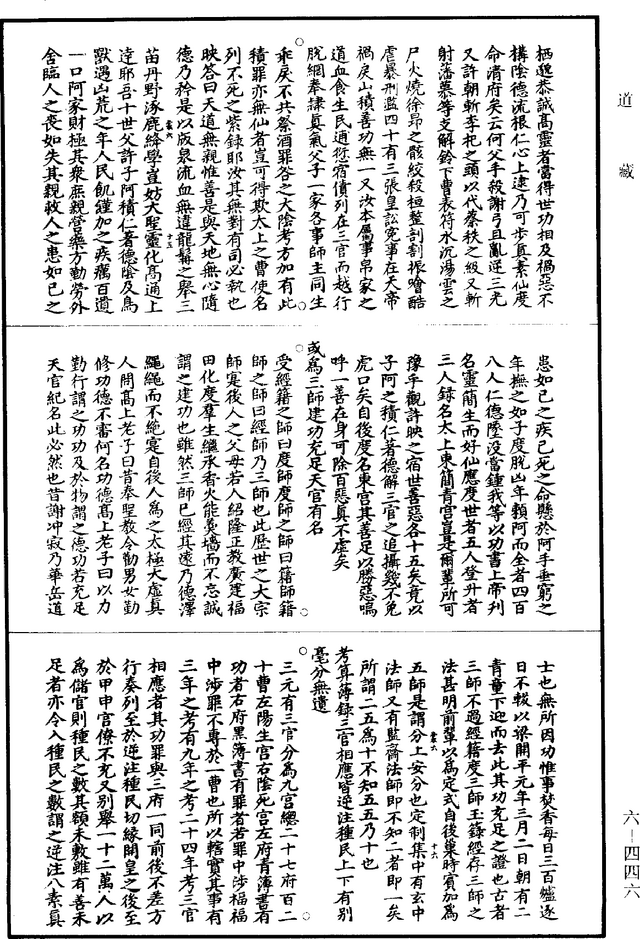 道藏
栖遯恭誠高靈者當得世功相及禍惡不
構陰德流根仁心上逮乃可步真索仙度
命清府矣云何父手殺謝弓且亂逆三光
又許朝斬李𣏌之頭以代蔡秩之級又斬
射潘綦等支解鈴下曹表符水沉湯雲之
尸火燒徐昂之骸絞殺桓整刳割振噲酷
虐暴刑濫四十有三張皇訟冤事在天帝
禍戾山積善功無一又汝本屬事帛家之
道血食生民逋愆宿債列在三官而越行
脫網奉隷真氣父子一家各事師主同生
乖戾不共祭酒罪咎之大陰考方加有此
積罪亦無仙者豈可得欺太上之曹使名
列不死之紫錄耶汝其無對有司必執也
映答曰天道無親惟善是與天地無心隨
德乃矜是以版泉流血無違龍髯之舉三
苗丹野涿鹿絳草豈妨大聖靈化高通上
達耶吾十世父許子阿積仁著德陰及鳥
獸遇凶荒之年人民飢饉加之疾癘百遺
一口阿家財極其衆庶親營藥方勤勞外
舍臨人之喪如失其親救人之患如己之
患如己之疾已死之命懸於阿手垂窮之
年撫之如子度脫凶年賴阿而全者四百
八人仁德墜没當鍾我等以功書上帝列
名靈簡生而好仙應度世者五人登升者
三人録名太上東簡青宮豈是爾輩所可
豫乎觀許映之宿世善惡各十五矣竟以
子阿之積仁著德解三官之追攝幾不免
虎口矣自後度名東宮其善足以勝惡嗚
呼一善在身可除百惡真不虛矣
或爲三師建功充足天官有名
受經籍之師曰度師度師之師曰籍師籍
師之師曰經師乃三師也此歷世之大宗
師寔後人之父母若人紹隆正教廣建福
田化度羣生繼承香火能羹墻而不忘誠
謂之建功也雖然三師已經其遠乃德澤
繩繩而不絶寔自後人爲之太極大虛真
人問高上老子曰昔奉聖教令勸男女勤
修功德不審何名功德高上老子曰以力
勤行謂之功功及於物謂之德功若充足
天官紀名此必然也昔謝冲寂乃華岳道
士也無所因功惟事焚香每日三百爐逐
日不輟以梁開平元年三月二日朝有二
青童下迎而去此其功充足之證也古者
三師不過經籍度三師王籙經存三師之
法甚明前輩以爲定式自後巢時賓加爲
五師是謂分上安分也定制集中有玄中
法師又有監齋法師即不知二者即一矣
所謂二五爲十不知五五乃十也
考筭簿録三官相應皆逆注種民上下有別
毫分無遺
三元有三官分爲九宮總二十七府百二
十曹左陽生宮右陰死宮左府青簿書有
功者右府黑簿書有罪者若罪中涉福福
中涉罪不專於一曹也所以轄實其事有
三年之考有九年之考二十四年考三官
相應者其功罪與三府一同前後不差方
行奏列至於逆注種民切緣開皇之後至
於甲申官僚不充又別舉一十二萬人以
爲儲官則種民之數其額未敷雖有善未
足者亦令入種民之數謂之逆注八素真
六-四四六